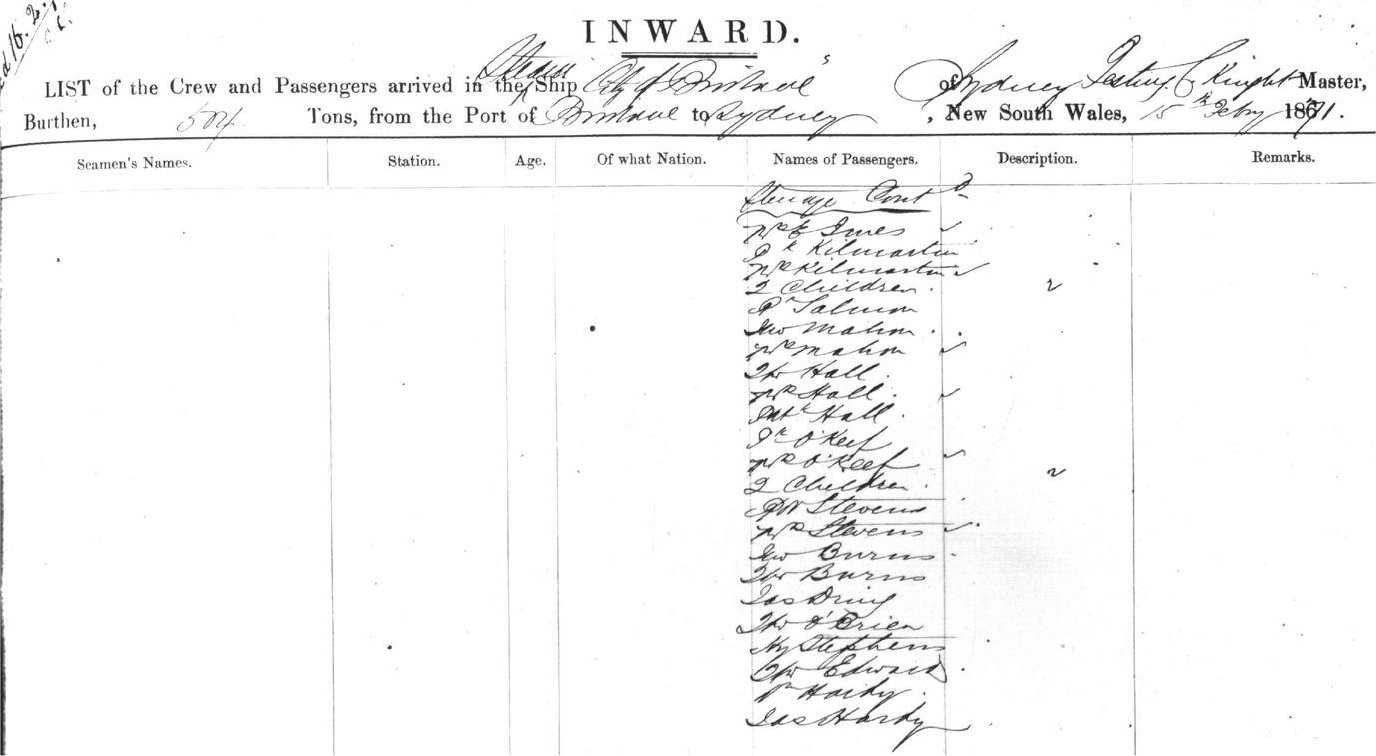 INWARD.
LIST of the Crew and Passengers arrived in the Steam Ship "City of Brisbane" of Sydney Knight Master,
Burthen, 504 Tons, from the Port of Brisbane to Sydney, New South Wales, 15th Febry 1871.
Seamen's Names. Station. Age. Of what Nation. Names of Passengers. Description. Remarks.
Steerage Contd
Mrs Innes
Pk Kilmartin
Mrs Kilmartin
2 Children 2
Salmon
Jno Mahon
Mrs Mahon
Tho Hall
Mrs Hall
Hall
O'Keef
Mrs O'Keef
2 Children 2
Stevens
Mrs Stevens
Jno Burns
Tho Burns
Jas Dring
Tho O'Brien
Hy Stephens
Edwards
Hardy
Jas Hardy